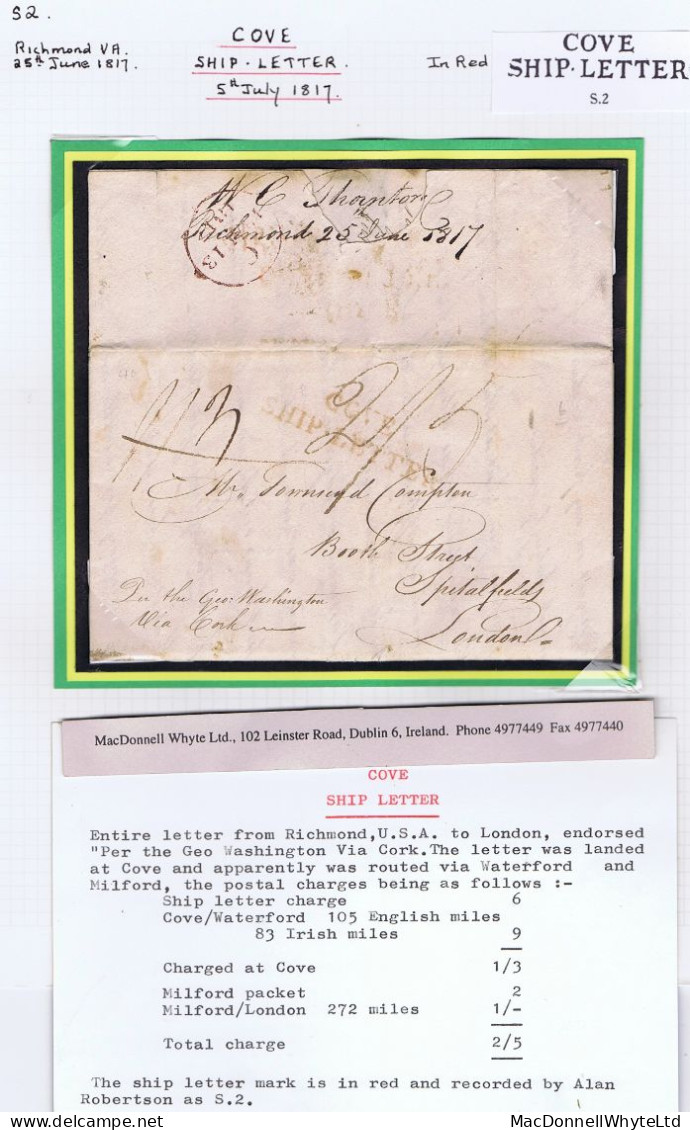 S2.
Richmond VA.
25th June 1817.
COVE
SHIP · LETTER.
5th July 1817.
In Red
COVE
SHIP·LETTER
S.2
W C Thornton
Richmond 25 June 1817
1/3 2/5
COVE
SHIP LETTER
Mr. Townsend Compton
Booth Street
Spitalfields
London
Per the Geo: Washington
Via Cork
MacDonnell Whyte Ltd., 102 Leinster Road, Dublin 6, Ireland. Phone 4977449 Fax 4977440
COVE
SHIP LETTER
Entire letter from Richmond,U.S.A. to London, endorsed
"Per the Geo Washington Via Cork.The letter was landed
at Cove and apparently was routed via Waterford and
Milford, the postal charges being as follows :-
Ship letter charge 6
Cove/Waterford 105 English miles
83 Irish miles 9
Charged at Cove 1/3
Milford packet 2
Milford/London 272 miles 1/-
Total charge 2/5
The ship letter mark is in red and recorded by Alan
Robertson as S.2.
delcampe.net
MacDonnellWhyteLtd